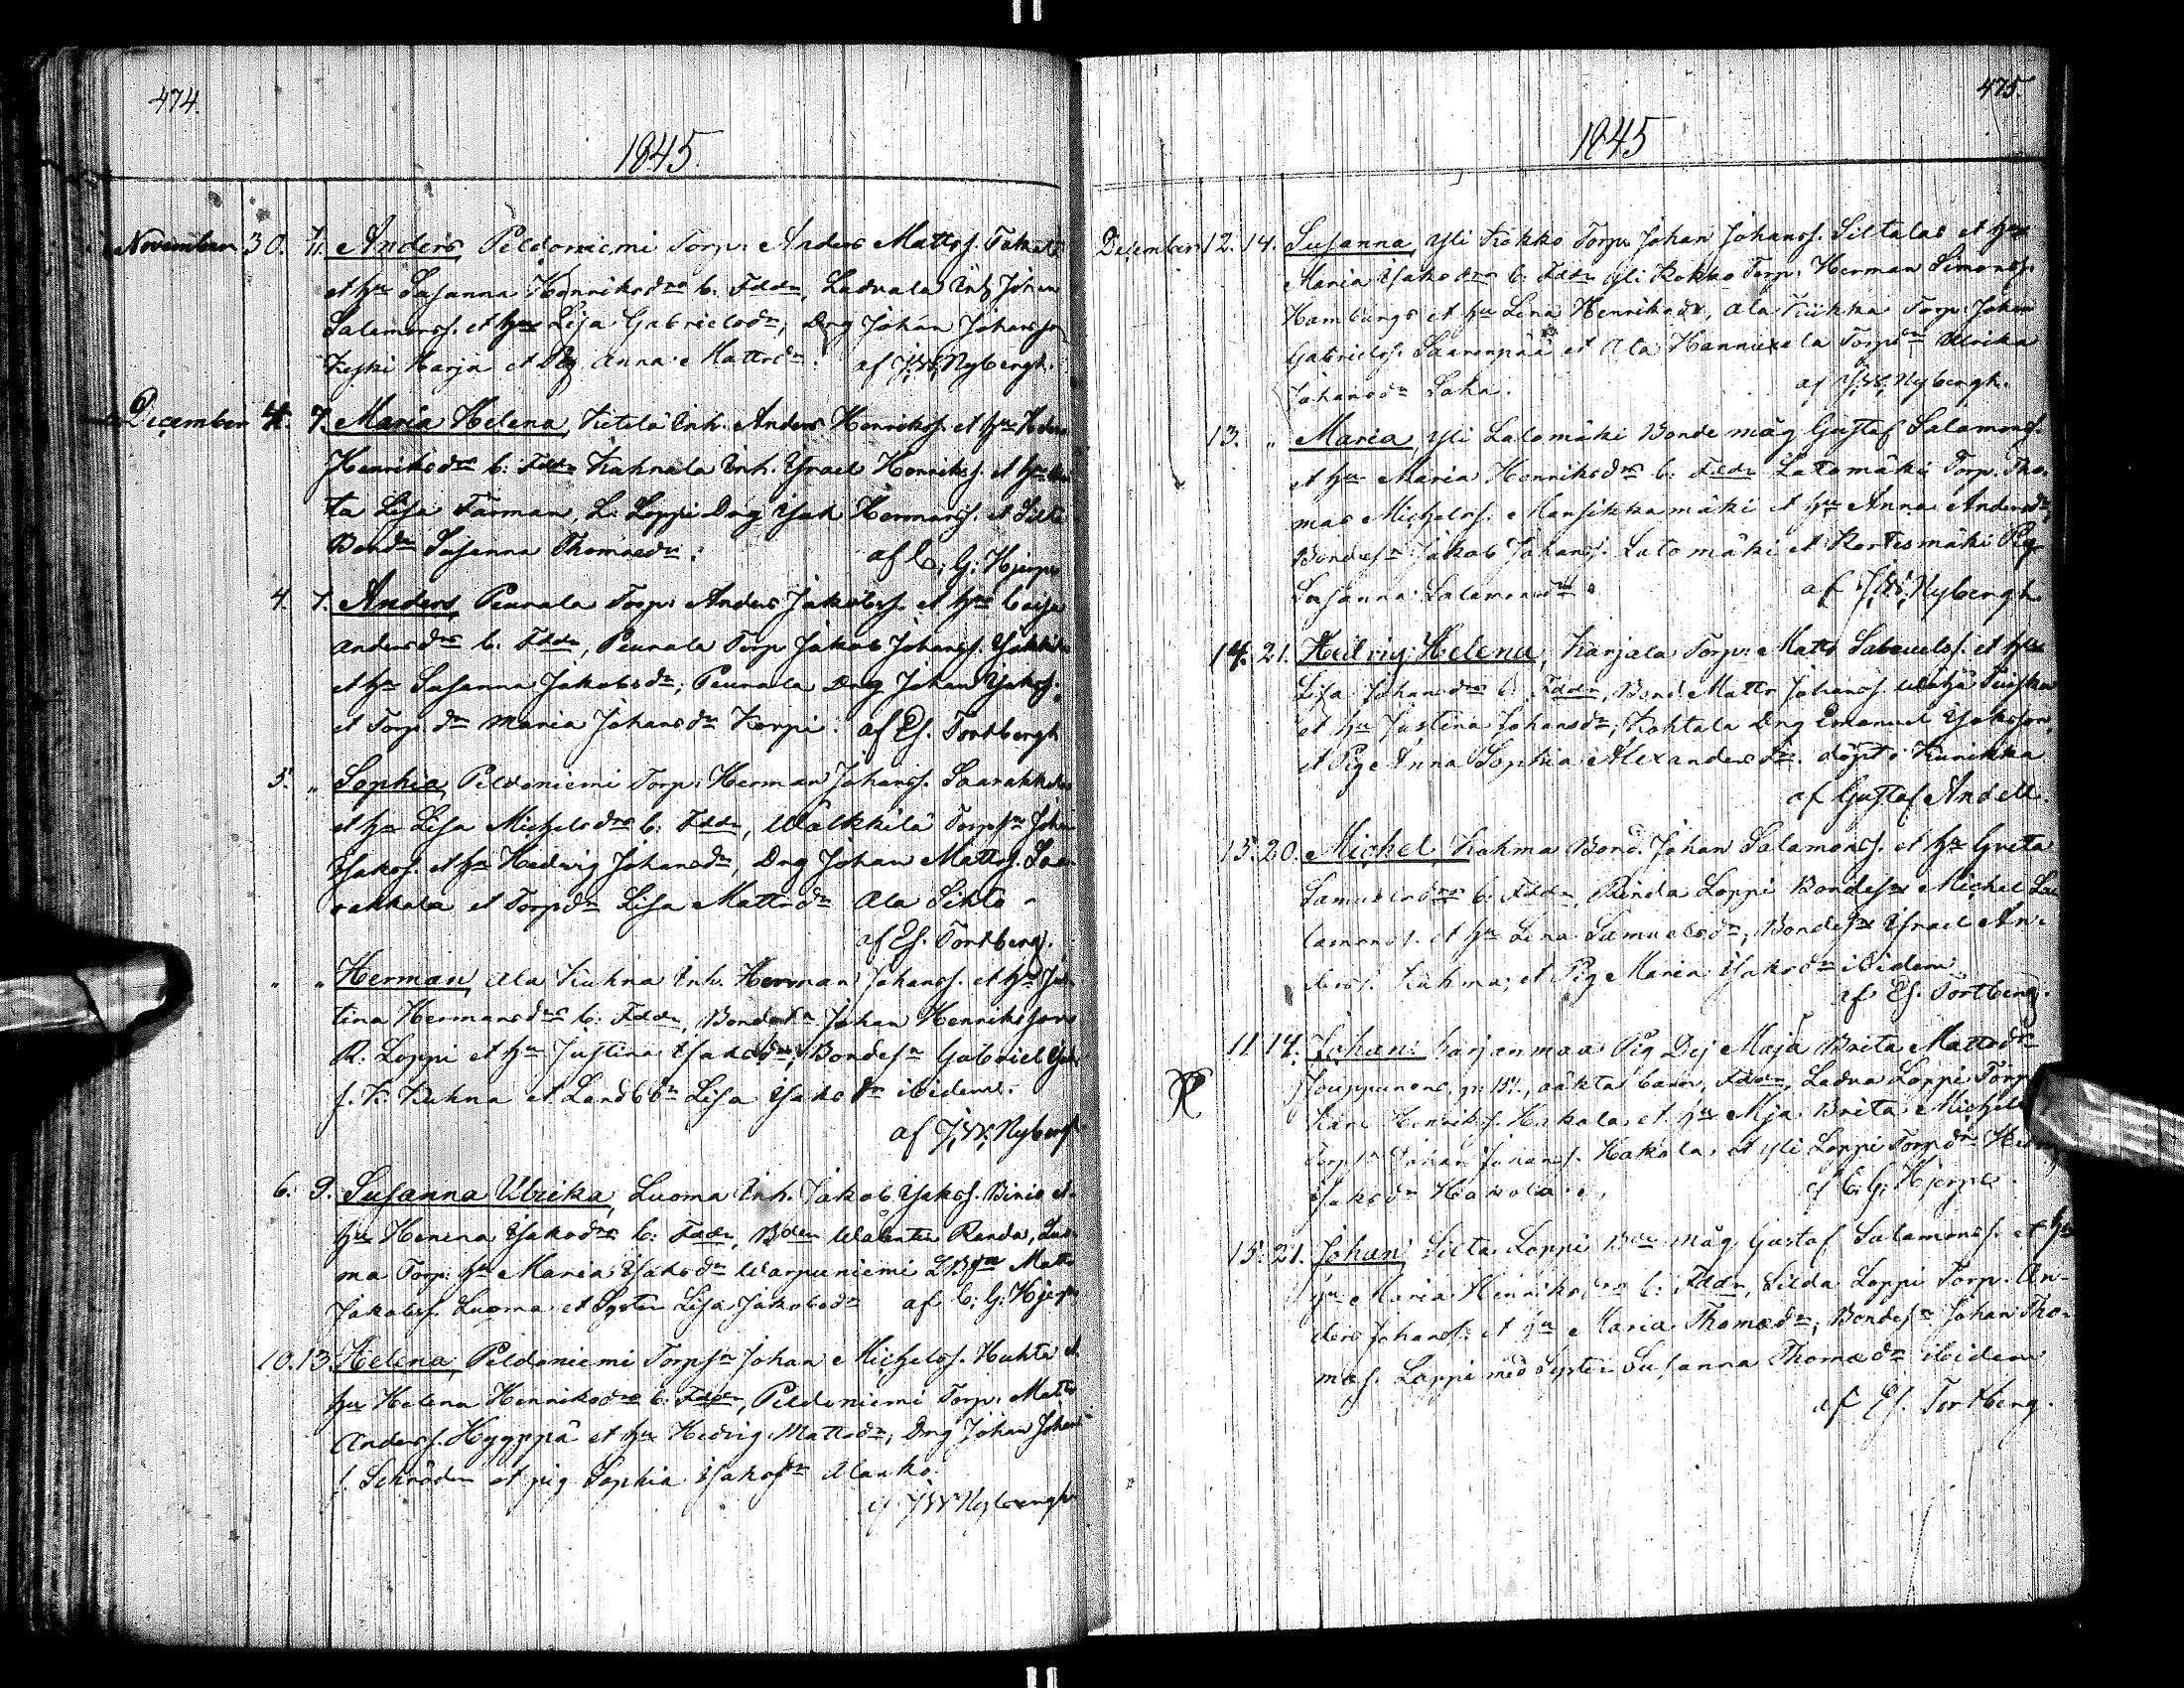 474.
1845.
November 30. 7/11. Anders, Peldoniemi Torp. Anders Mattss. Takala
et hu Susanna Henriksdrs b. Fddr, Ladvala Inh Johan
Salamonss. et hu Lisa Gabrielsdr, Drg Johan Johansson
Keski Karja et Pig Anna Mattsdr. af J.W. Nybergh.
December 4. 7. Maria Helena, Kietelä Inh. Anders Henrikss. et hu Helena
Henriksdrs b. Fddr Kuhnala Inh. Israel Henrikss. et hu
ta Lisa Färman, L. Loppi Drg Isak Hermanss. et Silta
Bondr Susanna Thomasdr. af C. G. Hjerpe
4. 7. Anders, Peurala Torp. Anders Jakobss. et hu Caisa
Andersdrs b. Fddr, Peurala Torp Jakob Johanss.
et hu Susanna Jakobsdr, Peurala Drg Johan Isakss.
et Torp.dr Maria Johansdr Korpi. af Es. Tortbergh
5. " Sophia, Peldoniemi Torp. Herman Johanss. Saarakkala
et hu Lisa Michelsdrs b. Fddr, Wälkkilä Torpsn Johan
Isakss. et hu Hedvig Johansdr, Drg Johan Mattss. Saa-
rakkala et Torpdr Lisa Mattsdr Ala Sihto
af Es. Tortberg.
" " Herman, Ala Kuhna Inh. Herman Johanss. et hu Jus-
tina Hermansdrs b. Fddr, Bondesn Johan Henriksson
R. Loppi et hu Justina Isaksdr, Bondesn Gabriel
s. K. Kuhna et Landbdr Lisa Isaksdr ibidem.
af J.W. Nyberg
6. 9. Susanna Ulrika, Luoma Inh. Jakob Isakss. Birie et
hu Henena Isaksdrs b. Fddr, Bden Walentin Randa, Luo-
ma Torp. hu Maria Isaksdr Warpuniemi LBsn Matts
Jakobss. Luoma et Syster Lisa Jakobsdr af C. G. Hjerpe
10. 13. Helena, Peldoniemi Torpsn Johan Michelss. Huhta et
hu Helena Henriksdrs b. Fddr, Peldoniemi Torp. Matts
Anderss. Hyyppä et hu Hedvig Mattsdr, Drg Johan Johans
s. Schröder et pig Sophia Isaksdr Alanko.
af J.W. Nybergh
475.
1845
December 12. 14. Susanna, Yli Kokko Torp. Johan Johanss. Siltalas et hu
Maria Isaksdrs b. Fddr Yli Kokko Torp. Herman Simonss.
Hamburgs et hu Lena Henriksdr, Ala Kiikka Torp. Johan
Gabrielss. Saarenpää et Ala Hannuxela Torpdr Ulrika
Johansdr Laka. af J.W. Nybergh.
13. " Maria, Yli Lalomäki Bonde måg Gustaf Salamonss.
et hu Maria Henriksdrs b. Fddr Latomäki Torp. Tho-
mas Michelss. Mansikkamäki et hu Anna Andersdr,
Bondesn Jakob Johanss. Latomäki et Kortesmäki Pig
Susanna Salamonsdr. af J.W. Nybergh
14. 21. Hedvig Helena, Karjala Torp. Matts Samuelss. et hu
Lisa Johansdrs b. Fddr, Bond. Matts Johanss. Wähä Tuiska
et hu Justina Johansdr, Kohtala Drg Emanuel Isaksson
et Pig Anna Sophia Alexandersdr. döpt i Kurikka
af Gustaf Andell.
15. 20. Michel, Kuhma Bond. Johan Salamonss. et hu Greta
Samuelsdrs b. Fddr, Rinda Loppi Bondesn Michel Sa-
lamonss. et hu Lena Samuelsdr, Bondesn Israel An-
derss. Kuhma, et Pig Maria Isaksdr ibidem
af Es. Tortberg.
11. 14. Johan. Karjanmaa Pig Dej Maja Brita Mattsdr
Jouppunens, oäkta barn, Fddr, Ladva Loppi Torp.
Karl Henrikss. Hakala et hu Mja Brita Michels
Torpsn Johan Johanss. Hakala, et Yli Loppi Torpdr Hedvig
Isaksdr Hakola. af C. G. Hjerpe.
15. 21. Johan, Silta Loppi Bde måg Gustaf Salamonss. et hu
hu Maria Henriksdrs b. Fddr, Silda Loppi Torp. An-
ders Johanss. et hu Maria Thomædr, Bondesn Johan Tho-
mæs. Loppi med Syster Susanna Thomædr ibidem
af Es. Tortberg.